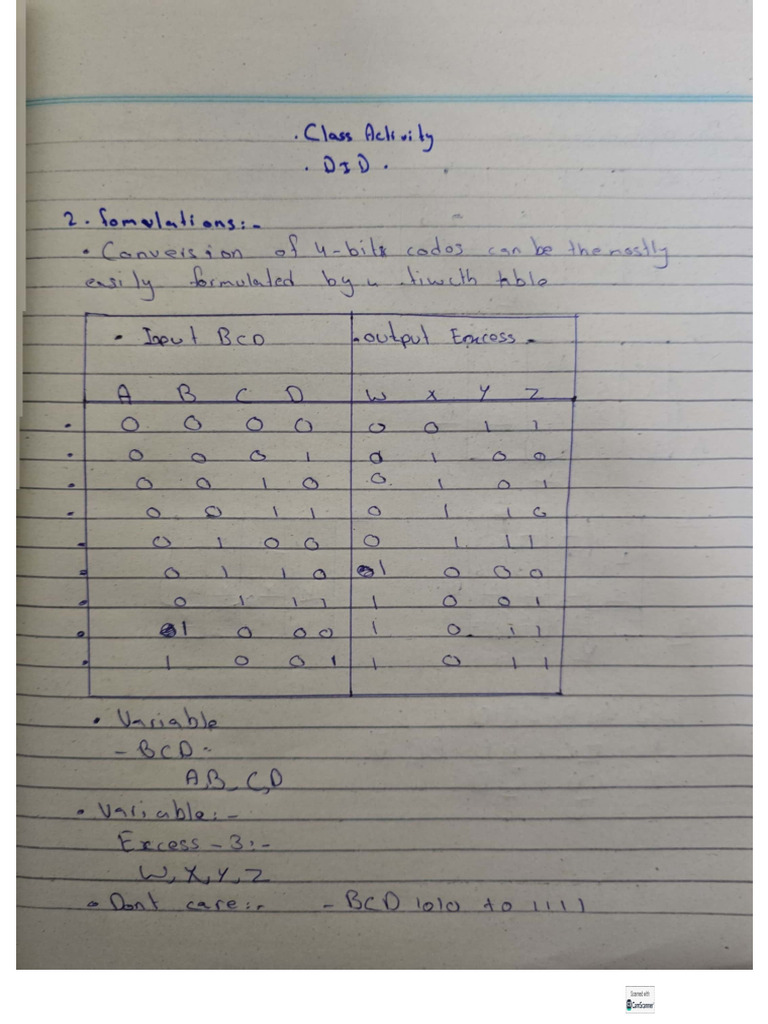 . Class Activity
. DID .
2. Fomulations:-
• Conversion of 4-bits codes can be the mostly
easily formulated by a table
• Input BCD .output Excess -
A B C D W X Y Z
. 0 0 0 0 0 0 1 1
. 0 0 0 1 0 1 0 0
. 0 0 1 0 0 1 0 1
. 0 0 1 1 0 1 1 0
. 0 1 0 0 0 1 1 1
. 0 1 1 0 1 0 0 0
. 0 1 1 1 1 0 0 1
. 1 0 0 0 1 0. 1 1
. 1 0 0 1 1 0 1 1
• Variable
- BCD -
A,B, C,D
• Variable:-
Excess - 3:-
W, X, Y, Z
• Dont care:- - BCD 1010 to 1111
Scanned with
CamScanner